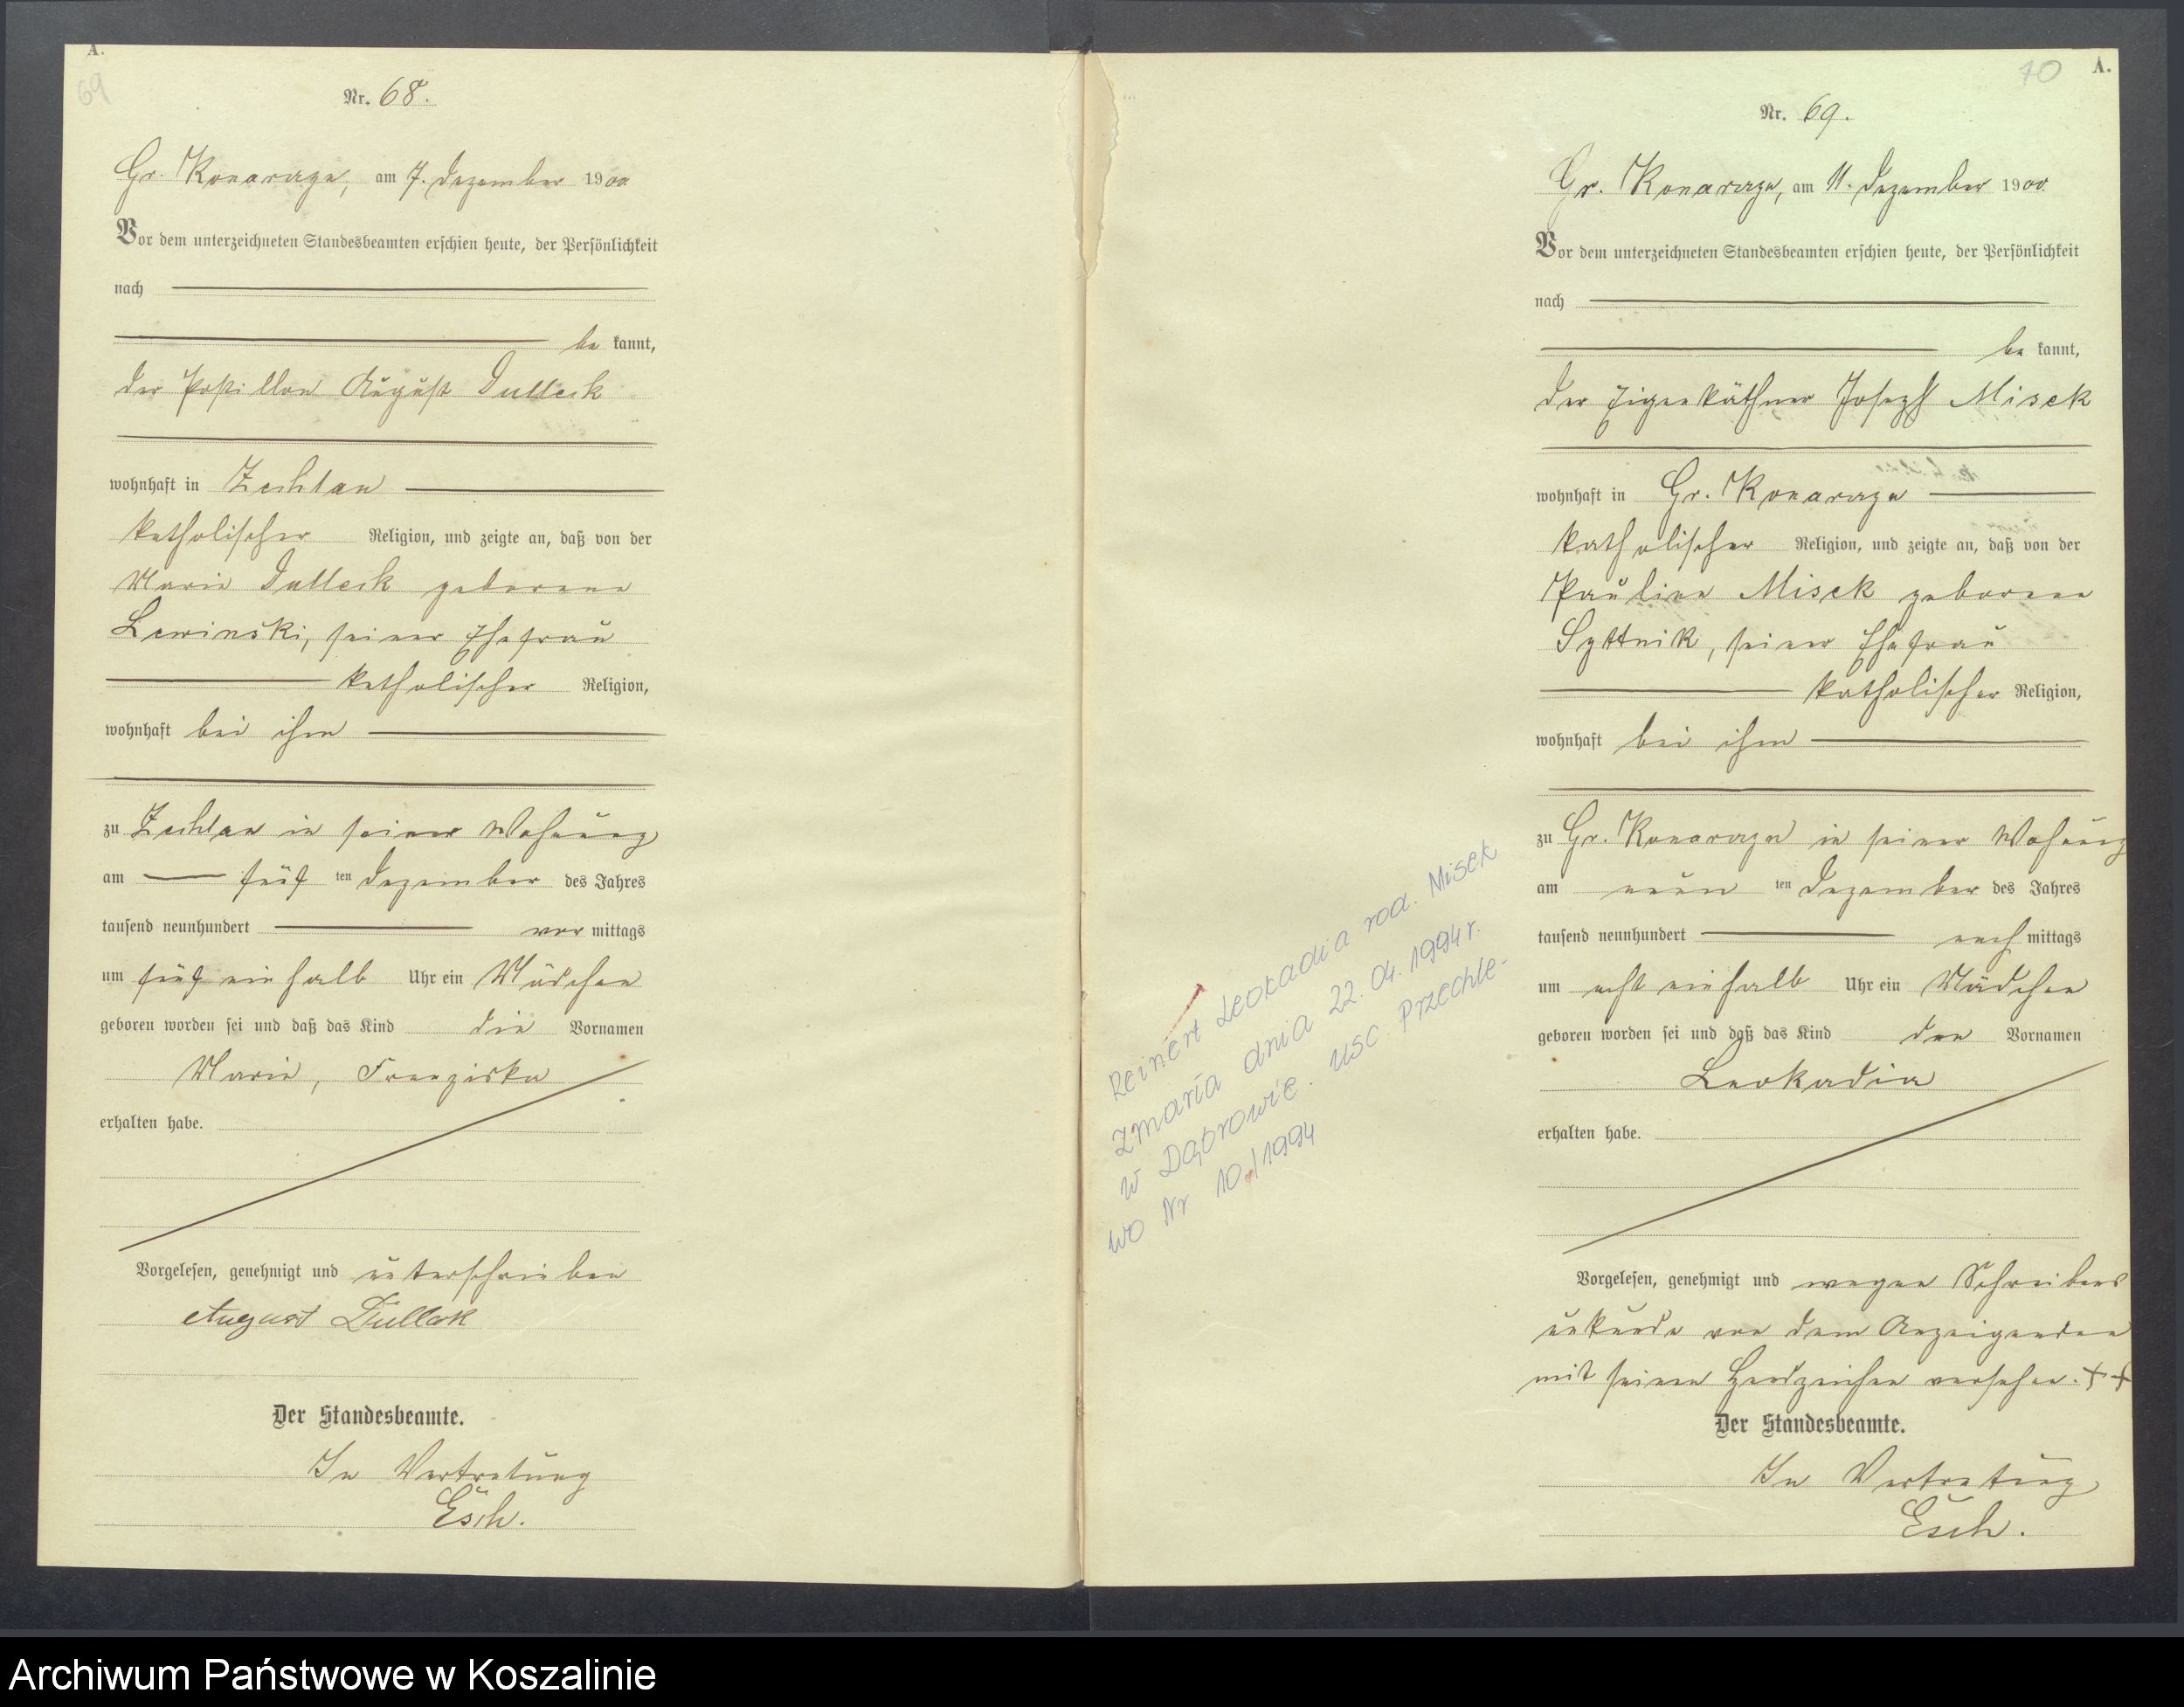 A.
69
Nr. 68.
Gr. Konarzyn, am 7. Dezember 1900
Vor dem unterzeichneten Standesbeamten erschien heute, der Persönlichkeit
nach
be kannt,
der Postillon August Dulleck
wohnhaft in Zechlau
katholischer Religion, und zeigte an, daß von der
Marie Dulleck geborene
Lewinski, seiner Ehefrau
katholischer Religion,
wohnhaft bei ihm
zu Zechlau in seiner Wohnung
am fünf ten Dezember des Jahres
tausend neunhundert vor mittags
um fünf ein halb Uhr ein Mädchen
geboren worden sei und daß das Kind die Vornamen
Marie, Franziska
erhalten habe.
Vorgelesen, genehmigt und unterschrieben
August Dullek
Der Standesbeamte.
In Vertretung
Esch.
70
A.
Nr. 69.
Gr. Konarzyn, am 11. Dezember 1900
Vor dem unterzeichneten Standesbeamten erschien heute, der Persönlichkeit
nach
be kannt,
der Eigenkäthner Joseph Misek
wohnhaft in Gr. Konarzyn
katholischer Religion, und zeigte an, daß von der
Pauline Misek geborene
Syttnik, seiner Ehefrau
katholischer Religion,
wohnhaft bei ihm
zu Gr. Konarzyn in seiner Wohnung
am neun ten Dezember des Jahres
tausend neunhundert nach mittags
um acht ein halb Uhr ein Mädchen
geboren worden sei und daß das Kind den Vornamen
Leokadia
erhalten habe.
Vorgelesen, genehmigt und wegen Schreibens
unkunde von dem Anzeigenden
mit seinen Handzeichen versehen. + +
Der Standesbeamte.
In Vertretung
Esch.
Reinert Leokadia rod. Misek
zmarła dnia 22.04.1994 r.
w Dąbrowie. USC Przechle-
wo Nr 10/1994
Archiwum Państwowe w Koszalinie